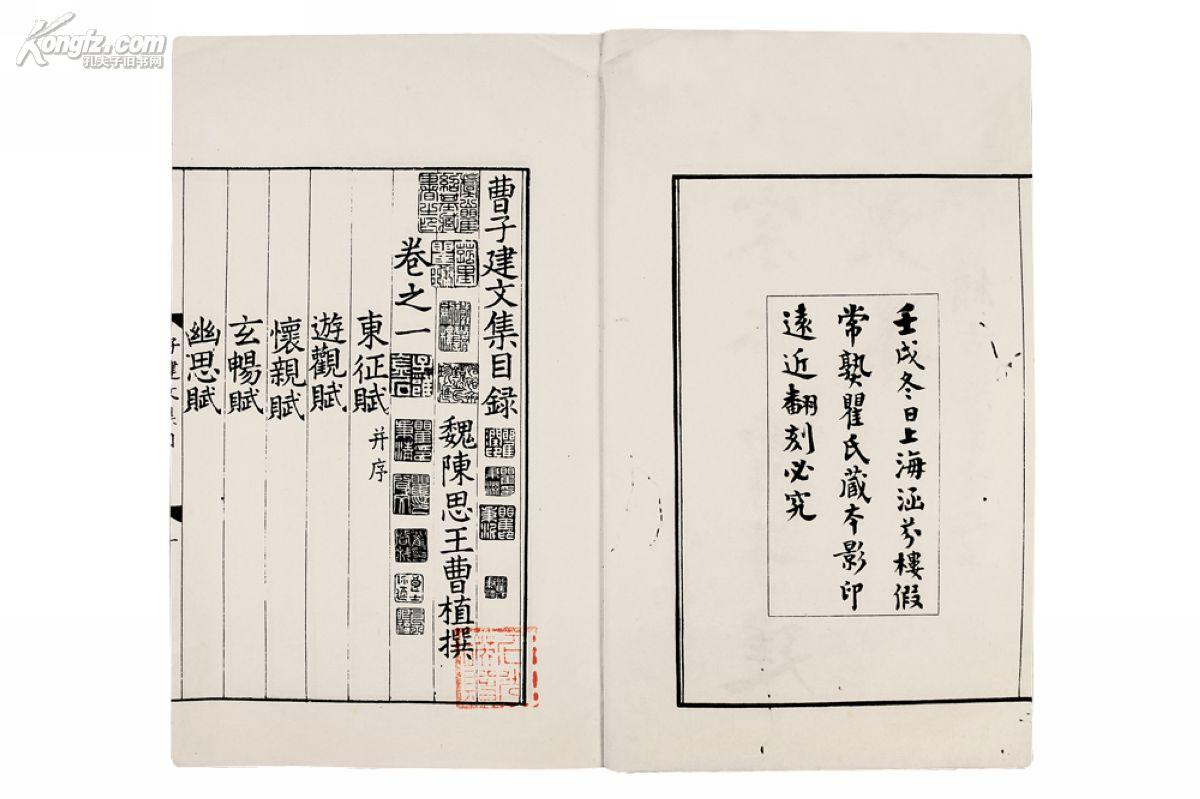 Kongfz.com
孔夫子旧书网
壬戌冬日上海涵芬樓假
常熟瞿氏藏本影印
遠近翻刻必究
曹子建文集目録
魏陳思王曹植撰
卷之一
東征賦并序
遊觀賦
懷親賦
玄暢賦
幽思賦
子建文集目